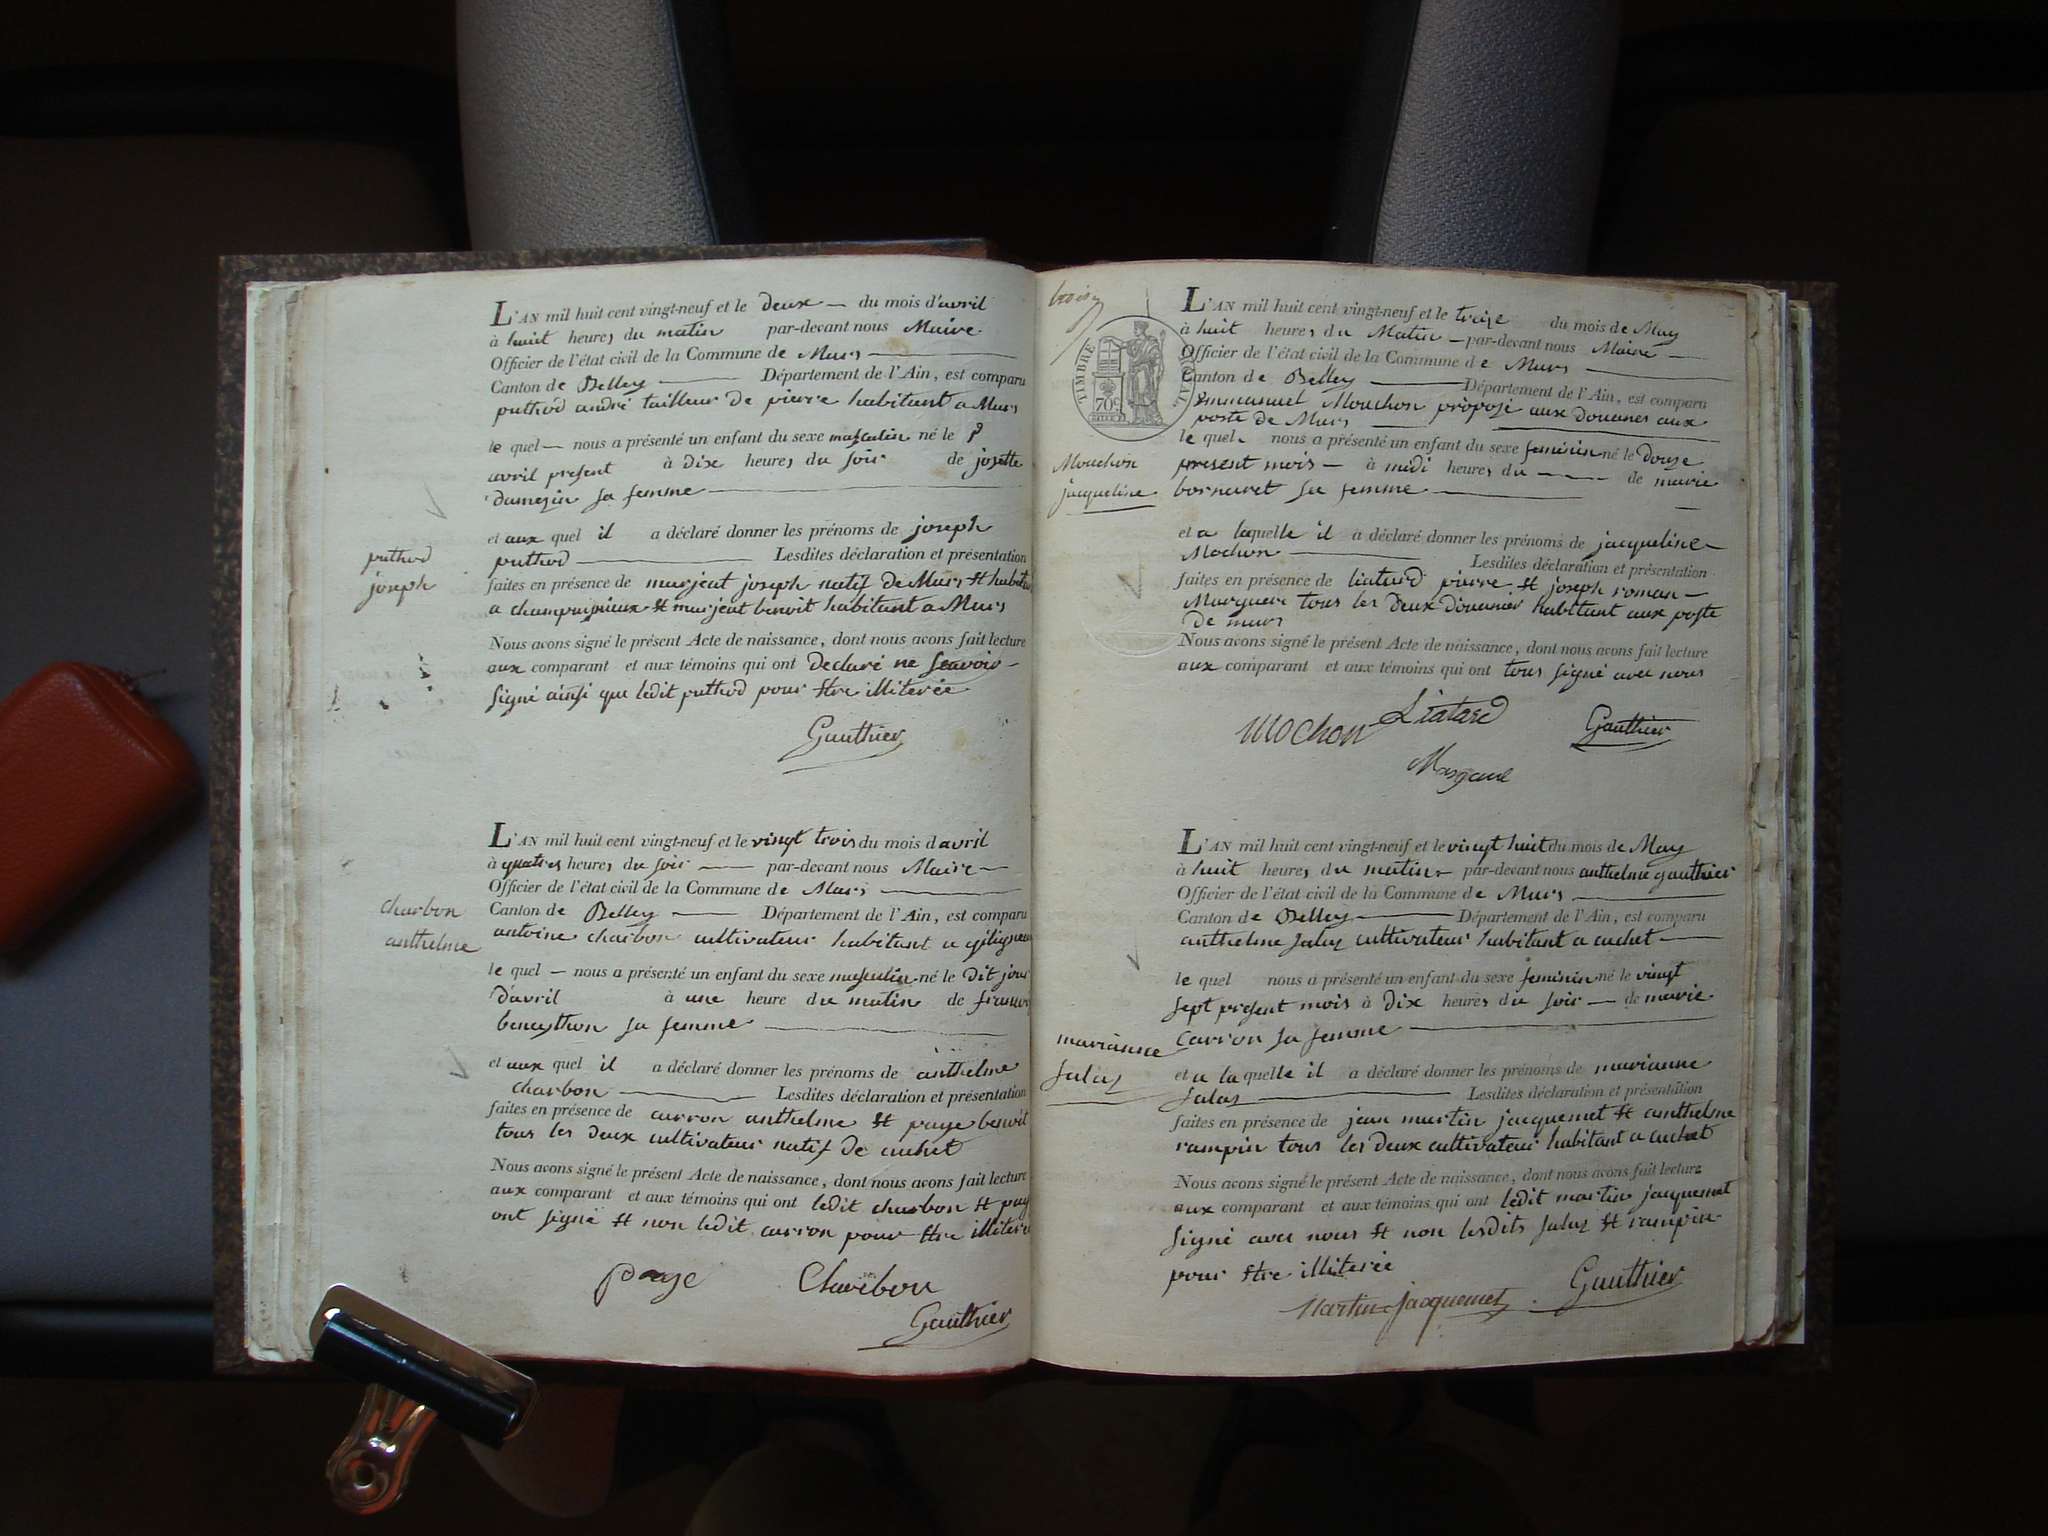 L'AN mil huit cent vingt-neuf et le deux du mois d'avril
à huit heures du matin par-devant nous Maire
Officier de l'état civil de la Commune de Murs
Canton de Belley Département de l'Ain, est comparu
puthod andré tailleur de pierre habitant a Murs
le quel nous a présenté un enfant du sexe masculin né le
avril present à dix heures du soir de josette
damezin sa femme
et aux quel il a déclaré donner les prénoms de joseph
puthod Lesdites déclaration et présentation
faites en présence de marjeat joseph natif de Murs et
a et marjeat benoit habitant a Murs
Nous avons signé le présent Acte de naissance, dont nous avons fait lecture
aux comparant et aux témoins qui ont declaré ne scavoir
signé ainsi que ledit puthod pour etre illiterée
Gauthier
puthod
joseph
L'AN mil huit cent vingt-neuf et le vingt trois du mois d avril
à quatres heures du soir par-devant nous Maire
Officier de l'état civil de la Commune de Murs
Canton de Belley Département de l'Ain, est comparu
antoine charbon cultivateur habitant a
le quel nous a présenté un enfant du sexe masculin né le dit jour
d'avril à une heure du matin de
sa femme
et aux quel il a déclaré donner les prénoms de anthelme
charbon Lesdites déclaration et présentation
faites en présence de carron anthelme et paye benoit
tous les deux cultivateur natif de cuchet
Nous avons signé le présent Acte de naissance, dont nous avons fait lecture
aux comparant et aux témoins qui ont ledit charbon et pay
ont signé et non ledit carron pour etre illiteré
paye Charëbon
Gauthier
charbon
anthelme
TIMBRE ROYAL
70c
L'AN mil huit cent vingt-neuf et le treize du mois de May
à huit heures du Matin par-devant nous Maire
Officier de l'état civil de la Commune de Murs
Canton de Belley Département de l'Ain, est comparu
emmanuel Mouchon préposé aux douanes aux
poste de Murs
le quel nous a présenté un enfant du sexe feminin né le douze
present mois à midi heures du de marie
bornaret sa femme
et a laquelle il a déclaré donner les prénoms de jacqueline
Mochon Lesdites déclaration et présentation
faites en présence de liatard pierre et joseph roman
tous les deux douanier habitant aux poste
de murs
Nous avons signé le présent Acte de naissance, dont nous avons fait lecture
aux comparant et aux témoins qui ont tous signé avec nous
Mochon Liatard Gauthier
Mouchon
jacqueline
L'AN mil huit cent vingt-neuf et le vingt huit du mois de May
à huit heures du matin par-devant nous anthelme gauthier
Officier de l'état civil de la Commune de Murs
Canton de Belley Département de l'Ain, est comparu
anthelme Jalaz cultivateur habitant a cuchet
le quel nous a présenté un enfant du sexe feminin né le vingt
sept present mois à dix heures du soir de marie
carron sa femme
et a laquelle il a déclaré donner les prénoms de marianne
Jalaz Lesdites déclaration et présentation
faites en présence de jean martin jacquemet et anthelme
rampin tous les deux cultivateur habitant a cuchet
Nous avons signé le présent Acte de naissance, dont nous avons fait lecture
aux comparant et aux témoins qui ont ledit martin jacquemet
signé avec nous et non lesdits Jalaz et rampin
pour etre illiterée
Martin Jacquemet Gauthier
marianne
Jalaz